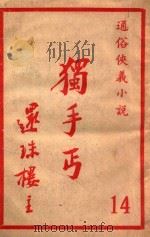 通俗俠義小說
獨手丐
還珠樓主
14